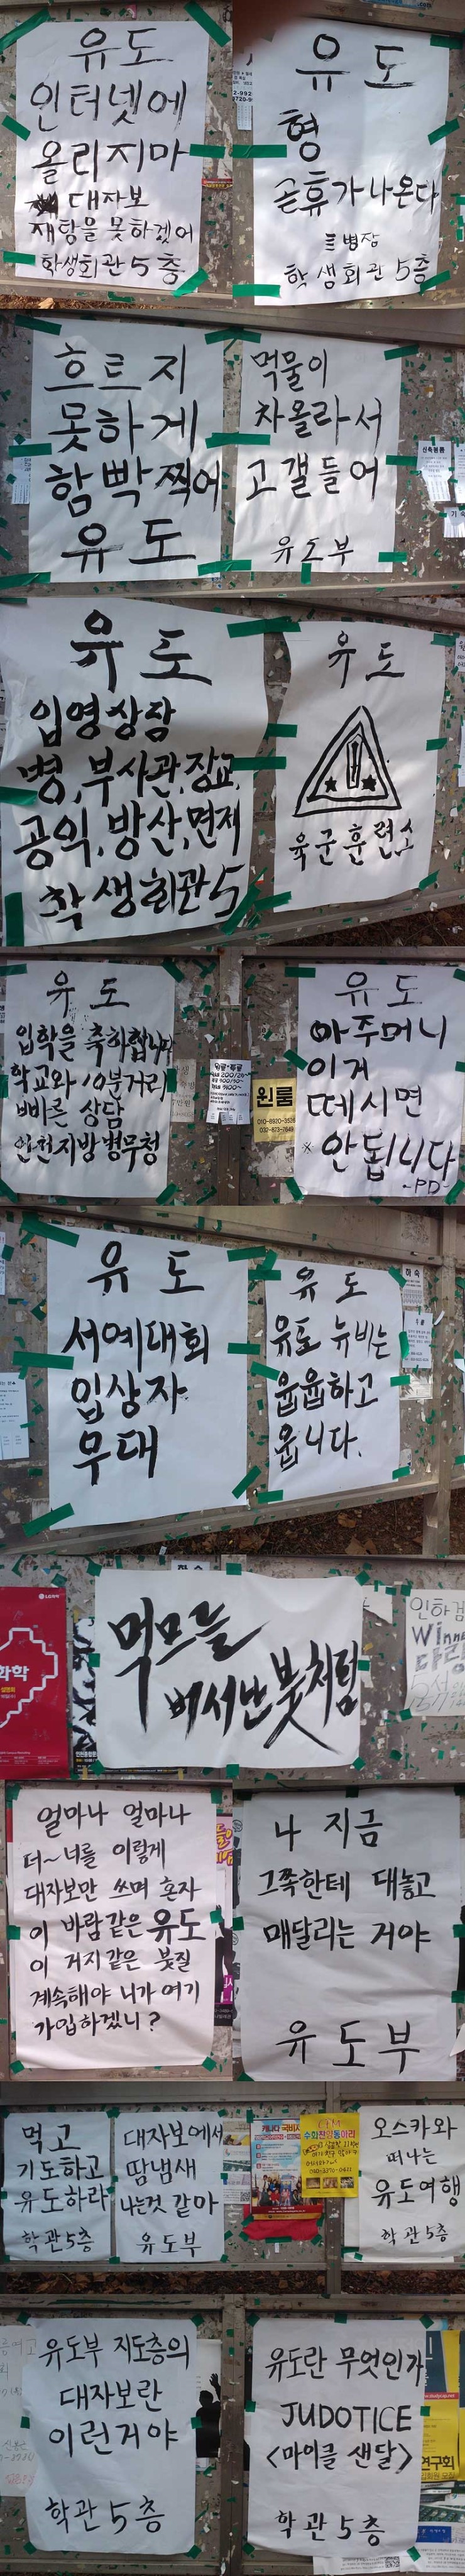 유도
인터넷에
올리지마
대자보
재탕을 못하겠어
학생회관 5층
유도
형
곧휴가나온다
병장
학생회관 5층
흐트지
못하게
함빡찍어
유도
먹물이
차올라서
고갤들어
유도부
유도
입영상담
병, 부사관, 장교,
공익, 방산, 면제
학생회관 5
유도
육군훈련소
유도
입학을 축하합니다
학교와 10분거리
빠른 상담
인천지방병무청
원룸
유도
아주머니
이거
떼시면
※ 안됩니다
-PD-
유도
서예대회
입상자
무대
유도
유도 뉴비는
웁웁하고
웁니다.
하숙
먹므를
벗서난 붓처럼
화학
얼마나 얼마나
더~ 너를 이렇게
대자보만 쓰며 혼자
이 바람같은 유도
이 거지같은 붓질
계속해야 니가 여기
가입하겠니?
나 지금
그쪽한테 대놓고
매달리는 거야
유도부
먹고
기도하고
유도하라
학관5층
대자보에서
땀냄새
나는것 같아
유도부
오스카와
떠나는
유도여행
학관5층
유도부 지도층의
대자보란
이런거야
학관5층
유도란 무엇인가
JUDOTICE
<마이클 샌달>
학관5층
연구회